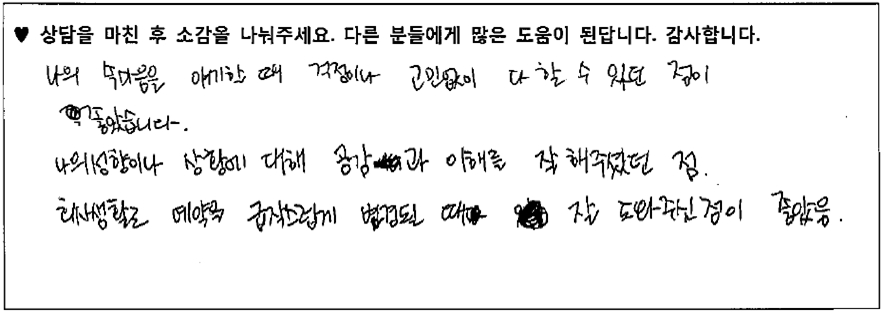 ♥ 상담을 마친 후 소감을 나눠주세요. 다른 분들에게 많은 도움이 된답니다. 감사합니다.
나의 속마음을 얘기할 때 걱정이나 고민없이 다 할 수 있던 점이
좋았습니다.
나의성향이나 상황에 대해 공감과 이해를 잘 해주셨던 점.
회사생활로 예약을 급작스럽게 변경될 때 잘 도와주신점이 좋았음.